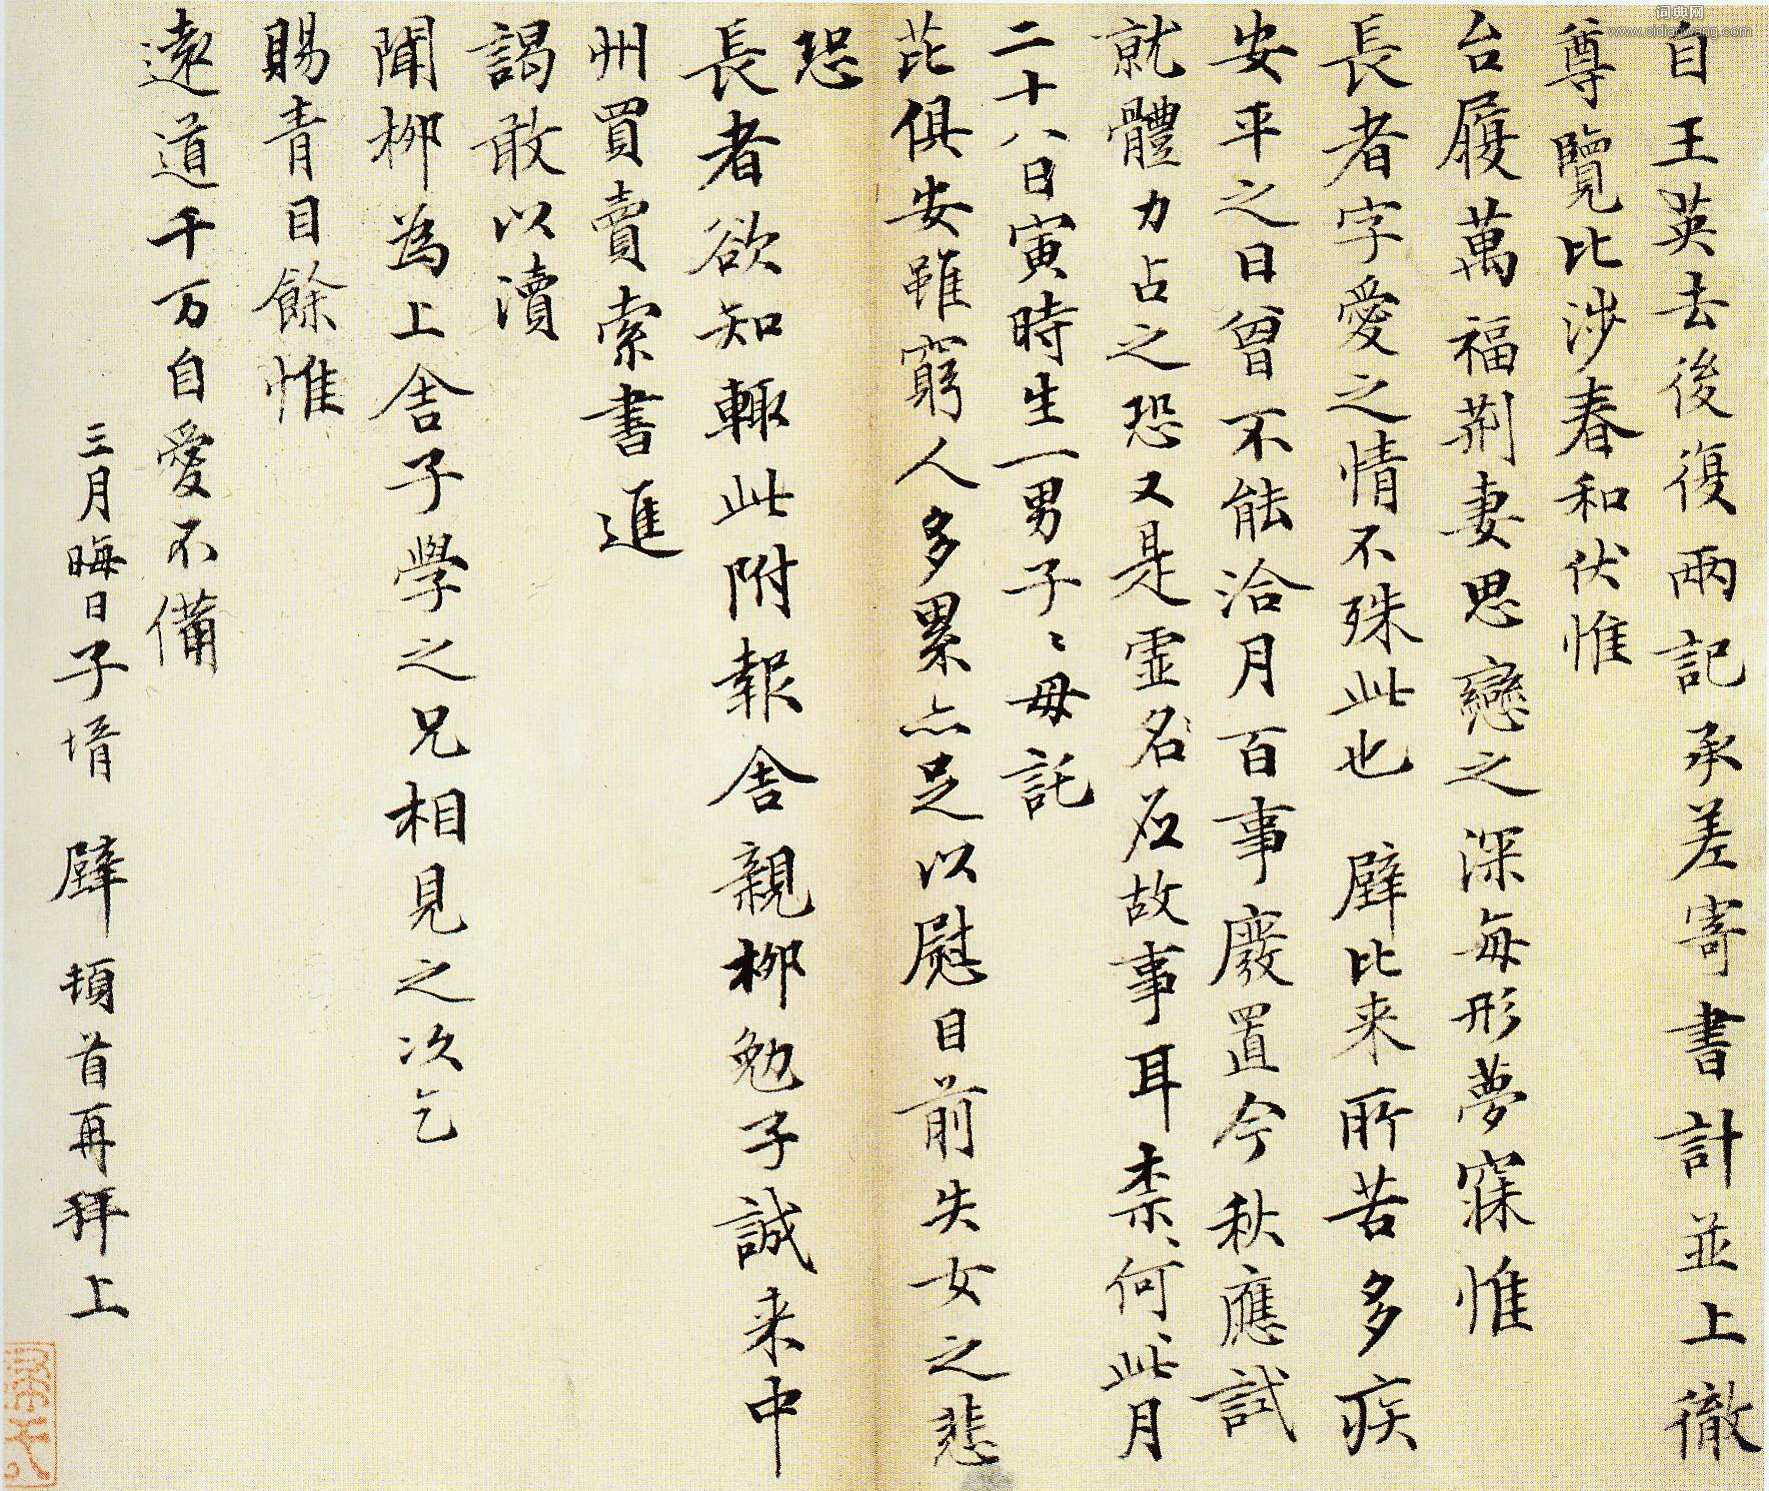 自王英去後復兩記承差寄書計並上徹
尊覽比涉春和伏惟
台履萬福荊妻思戀之深每形夢寐惟
長者字愛之情不殊此也 璧比来所苦多疾
安平之日曾不能洽月百事廢置今秋應試
就體力占之恐又是虛名應故事耳柰何柰何此月
二十八日寅時生一男子〻母託
芘俱安雖窮人多累亦足以慰目前失女之悲
恐
長者欲知輒此附報舍親柳勉子誠来中
州買賣索書進
謁敢以瀆
聞柳為上舍子學之兄相見之次乞
賜青目餘惟
遠道千万自愛不備
三月晦日子壻 璧 頓首再拜上
词典网
www.cidianwang.com